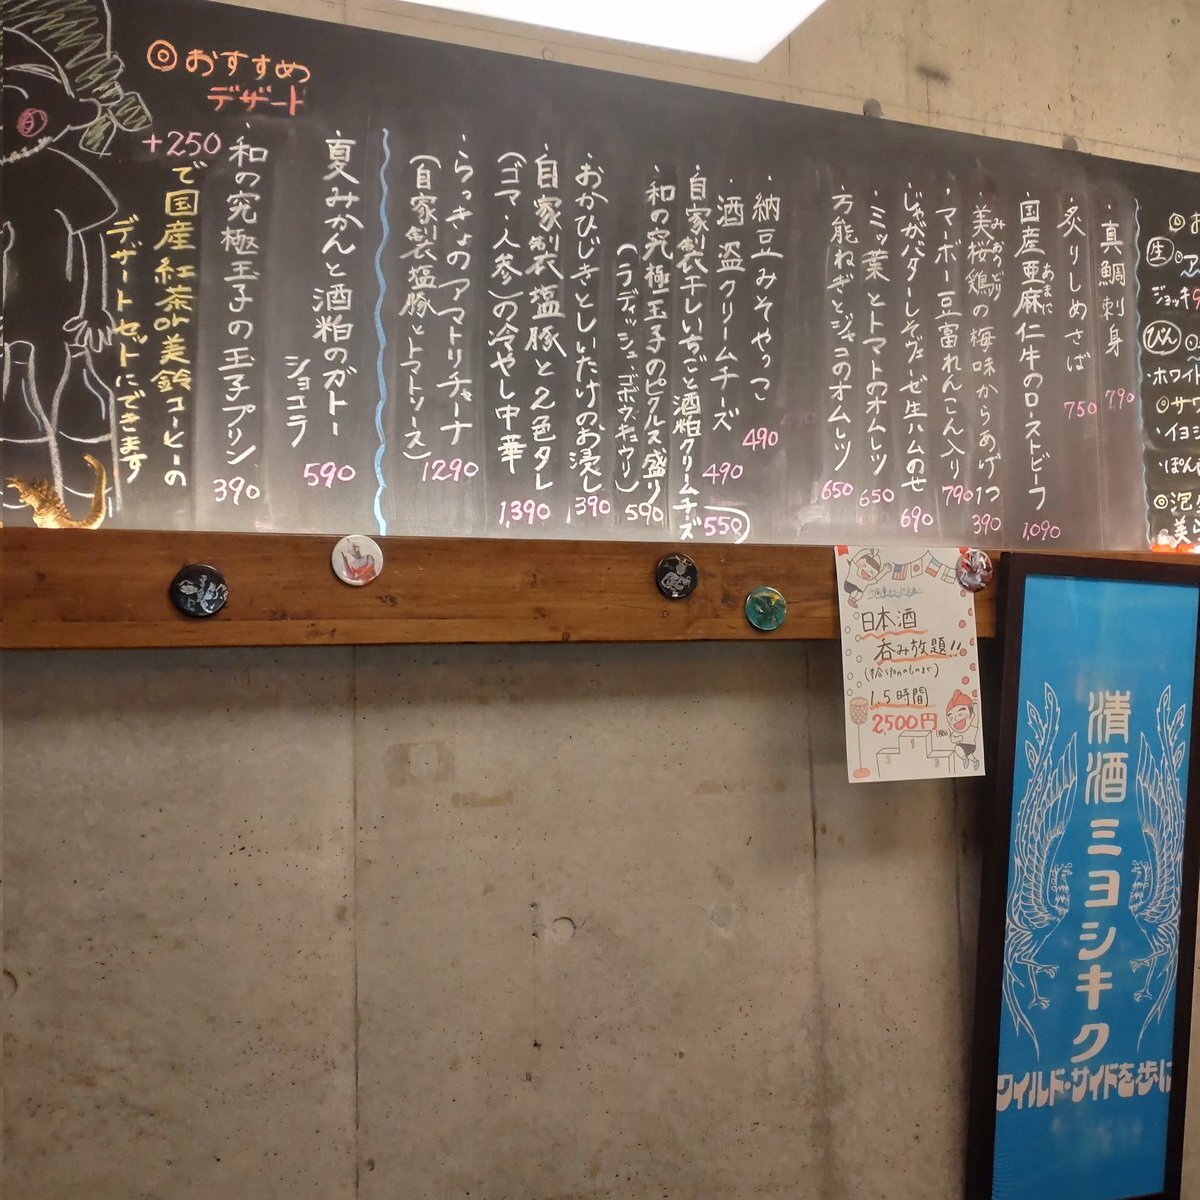 ◎お
生 ◎ア
ジョッキ
びん
・ホワイト
◎サワ
・イヨシ
・ぽん
◎泡
美
・真鯛刺身 790
・炙りしめさば 750
・国産亜麻仁牛のローストビーフ 1,090
あまに
・美桜鶏の梅味からあげ1つ 390
みおうどり
・マーボー豆富れんこん入り 790
・じゃがバターしそヴェーゼ生ハムのせ 690
・ミツ葉とトマトのオムレツ 650
・万能ねぎとジャコのオムレツ 650
・納豆みそやっこ 490
・酒盗クリームチーズ 490
・自家製干しいちごと酒粕クリームチーズ 550
・和の究極玉子のピクルス盛り 590
(ラディッシュ、ゴボウ、キュウリ)
・おかひじきとしいたけのお浸し 390
・自家製塩豚と2色タレ
(ゴマ・人参)の冷やし中華 1,390
・らっきょのアマトリチャーナ
(自家製塩豚とトマトソース) 1290
◎おすすめ
デザート
・夏みかんと酒粕のガトー
ショコラ 590
・和の究極玉子の玉子プリン 390
+250
で国産紅茶or美鈴コーヒーの
デザートセットにできます
日本酒
呑み放題!!
(半合590円のものまで)
1.5時間
2,500円
(税込)
1
2
3
清酒ミヨシキク
ワイルド・サイドを歩け